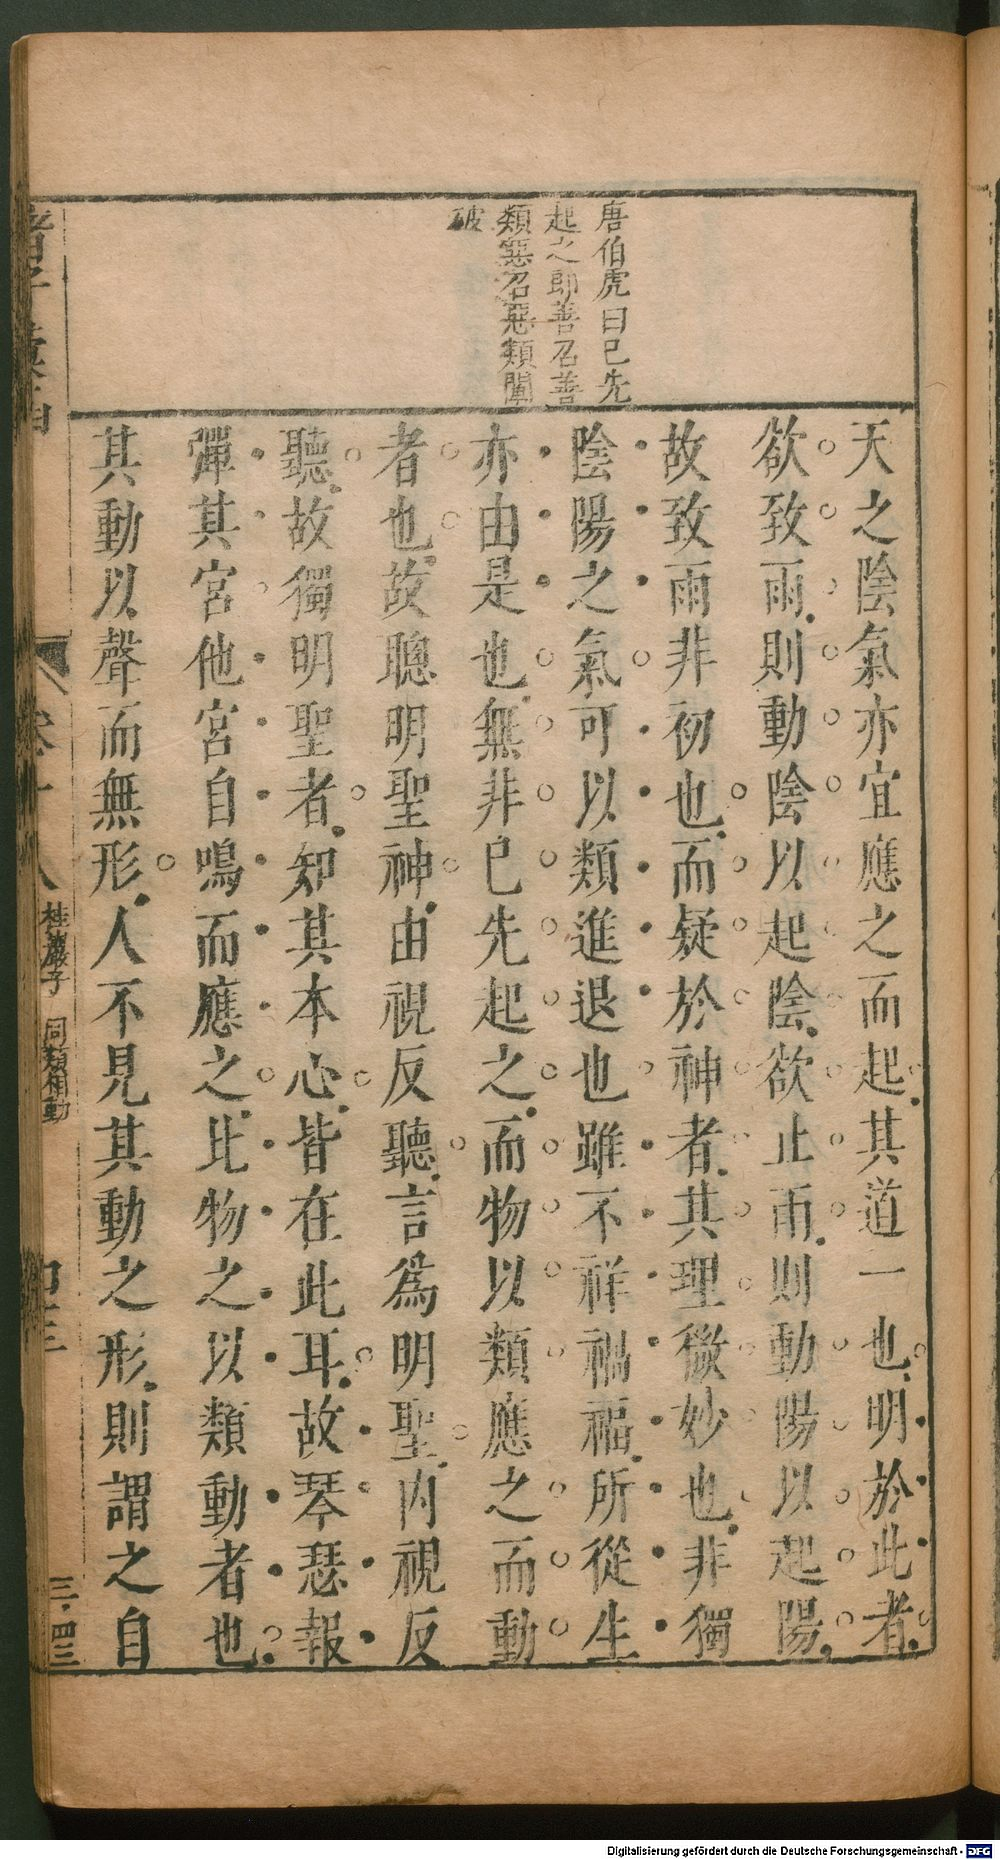 唐伯虎曰已先
起之卽善召善
類惡召惡類闡
破
天之陰氣亦宜應之而起其道一也明於此者
欲致雨則動陰以起陰欲止雨則動陽以起陽
故致雨非初也而疑於神者其理微妙也非獨
陰陽之氣可以類進退也雖不祥禍福所從生
亦由是也無非已先起之而物以類應之而動
者也故聰明聖神由視反聽言為明聖內視反
聽故獨明聖者知其本心皆在此耳故琴瑟報
彈其宮他宮自鳴而應之比物之以類動者也
其動以聲而無形人不見其動之形則謂之自
諸子彙函
卷十八
桂巖子 同類相動
三·四三
Digitalisierung gefördert durch die Deutsche Forschungsgemeinschaft - DFG